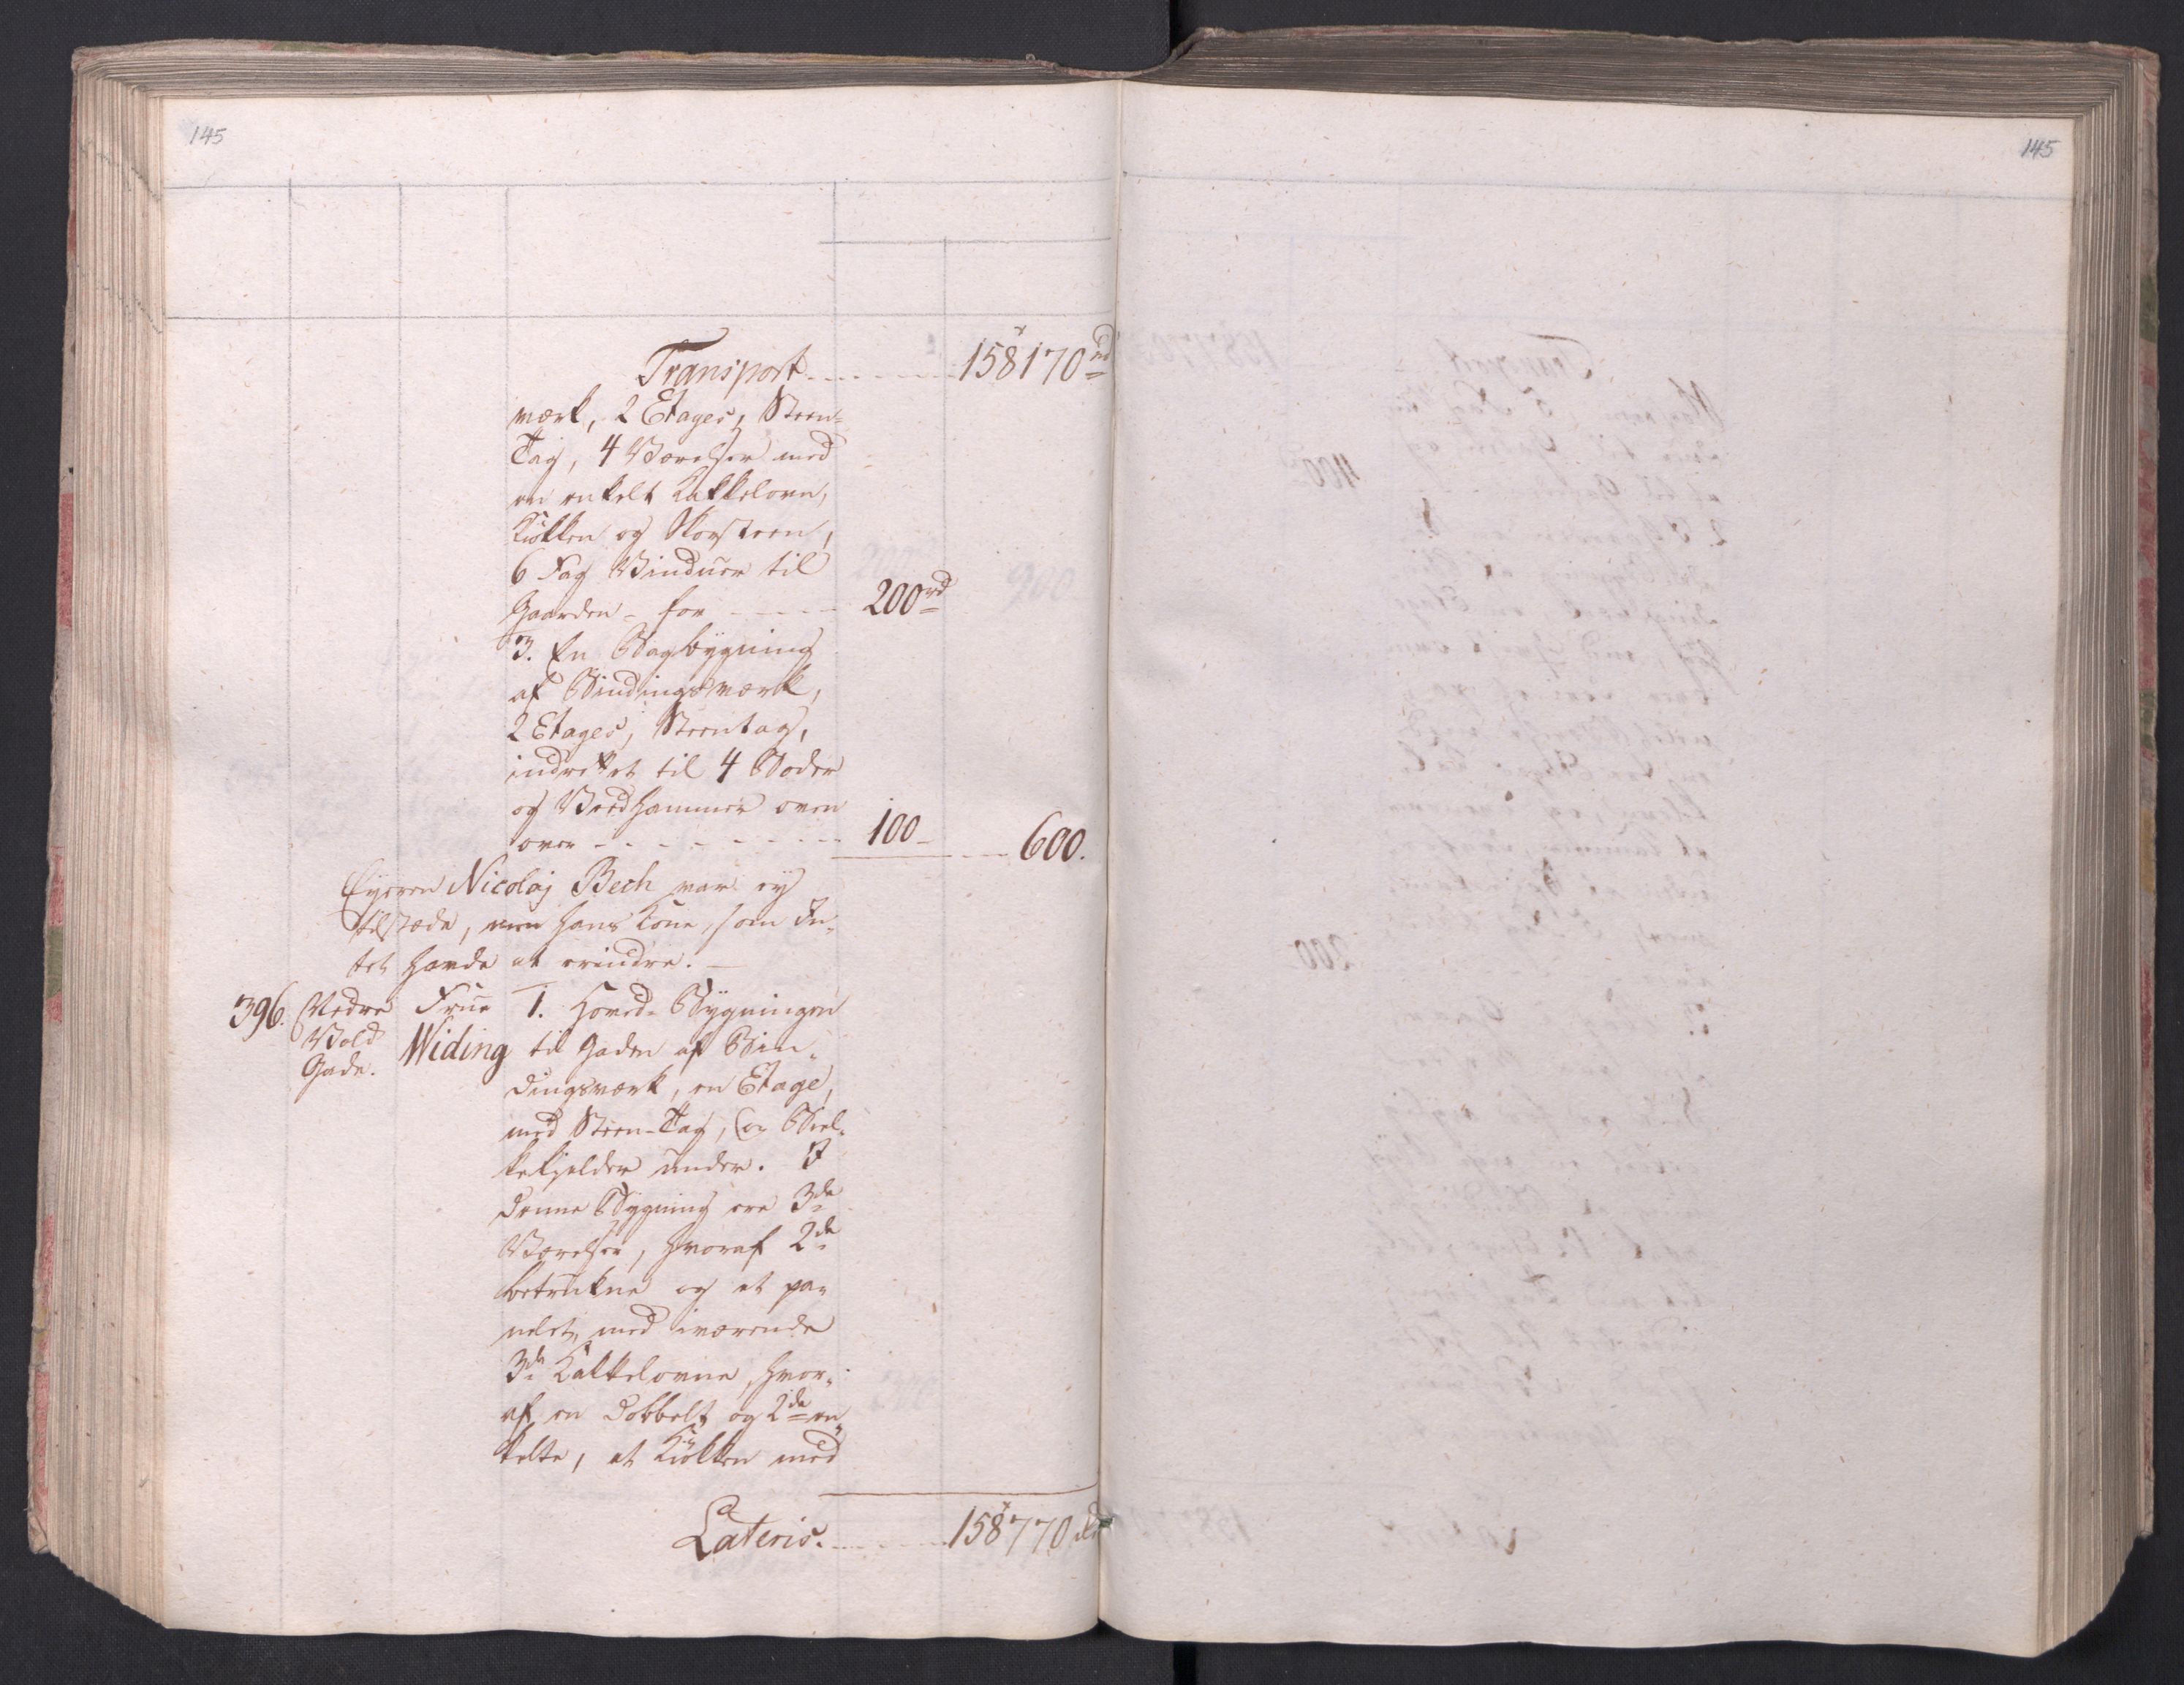 145
145
Transport 158170 rd
værk, 2 Etages, Steen-
Tag, 4 Værelser med
en enkelt Kakkelovn,
Kiøkken og Skorsteen,
6 Fag Vinduer til
Gaarden - for 200 rd
3. En Bagbygning
af Bindingsværk,
2 Etages, Steentag,
indrettet til 4 Boder
og Værdhammer oven
over 100 - 600.
Eyeren Nicolaj Bech var ey
tilstæde, men hans Kone, som In-
tet havde at erindre.
396. Nedre Frue 1. Hoved-Bygningen
Vold Widing til Gaden af Bin-
Gade.
dingsværk, en Etage,
med Steen-Tag, og Biel-
kekjelder under. I
denne Bygning ere 3de
Værelser, hvoraf 2de
betrukne og et pa-
nelet, med iværende
3de Kakkelovne, hvor-
af en dobbelt og 2de en-
kelte, et Kiøkken med
Lateris. 158770 rd